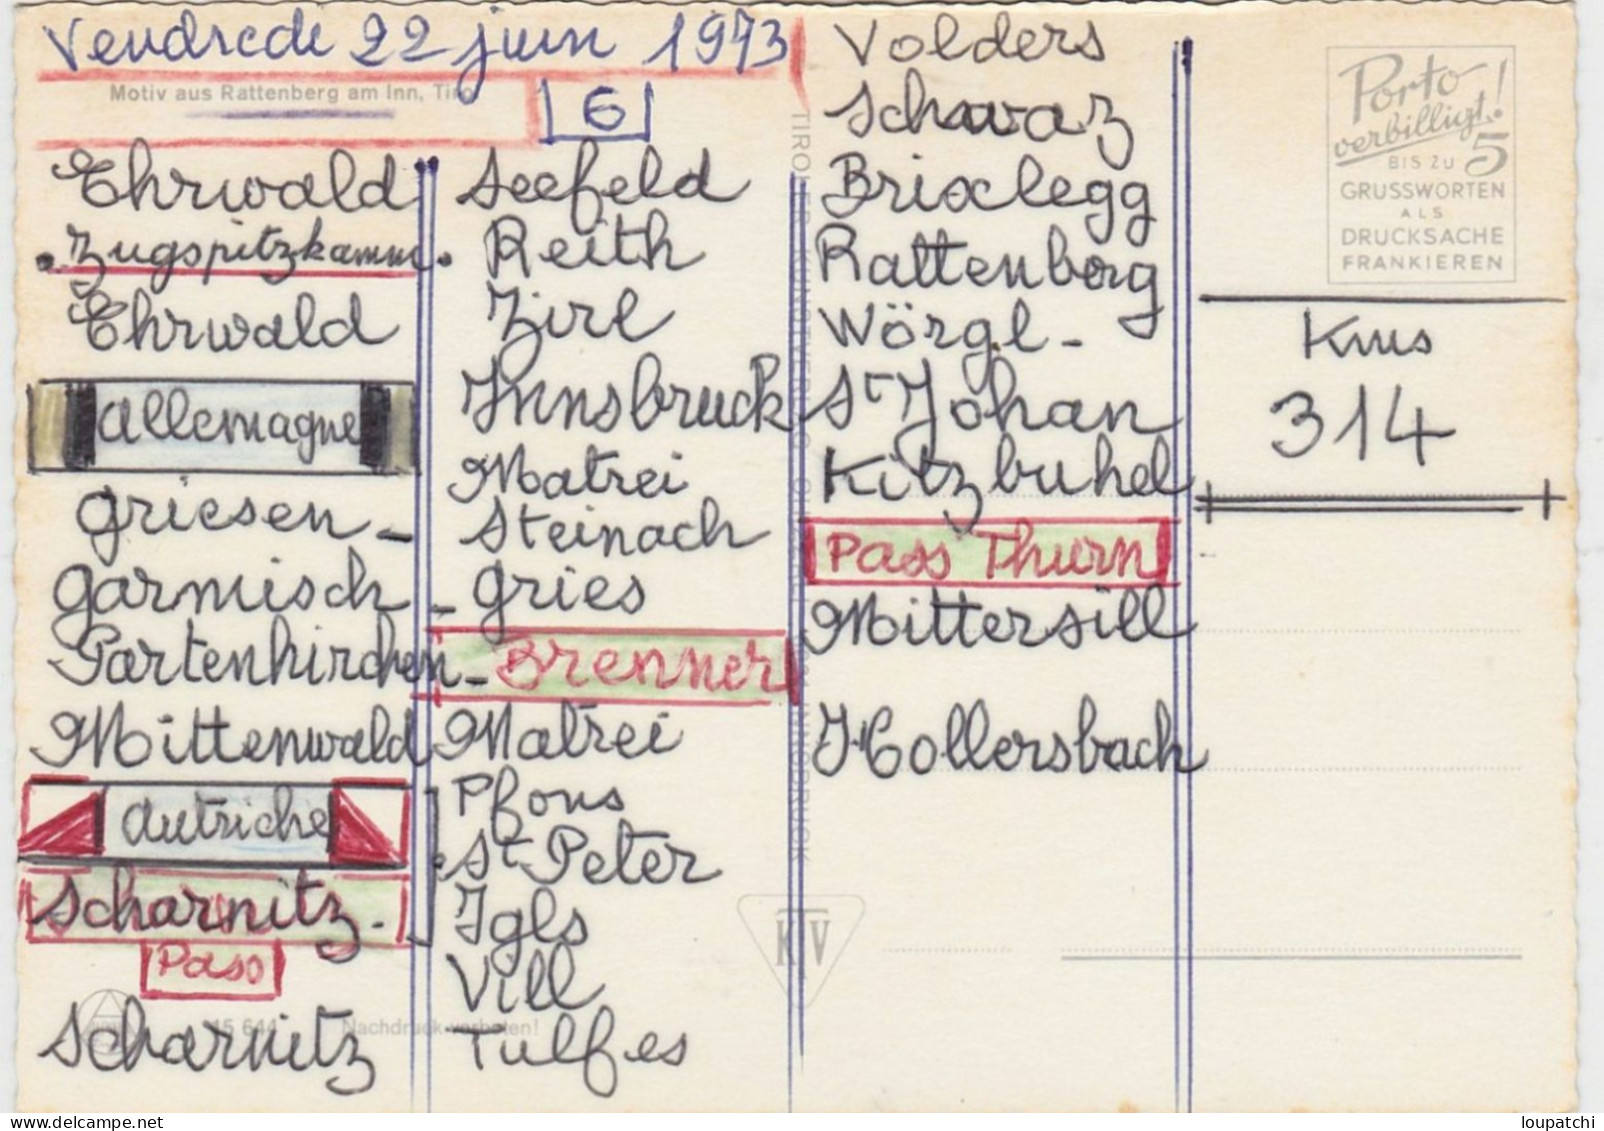 Vendredi 22 juin 1973
Motiv aus Rattenberg am Inn, Tirol
6
Ehrwald
. Zugspitzkamm.
Ehrwald
Allemagne
Griesen -
Garmisch -
Partenkirchen -
Mittenwald
Autriche
Scharnitz -
Pass
15 644 Nachdruck verboten!
Scharnitz
Seefeld
Reith
Zirl
Innsbruck
Matrei
Steinach
Gries
Brenner
Matrei
Pfons
St Peter
Igls
Vill
Tulfes
Volders
Schwaz
Brixlegg
Rattenberg
Wörgl -
St Johan
Kitzbuhel
Pass Thurn
Mittersill
Hollersbach
KTV
Porto
verbilligt!
BIS ZU 5
GRUSSWORTEN
ALS
DRUCKSACHE
FRANKIEREN
Kms
314
www.delcampe.net
loupatchi